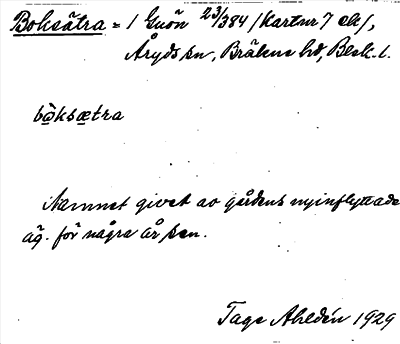 Boksätra = 1 Guön 23/384 /Kartnr 7 ek/,
Åryds sn, Bräkne hd, Blek. l.
bọ̀ksætra
Namnet givet av gårdens nyinflyttade
äg. för några år sen.
Tage Ahldén 1929